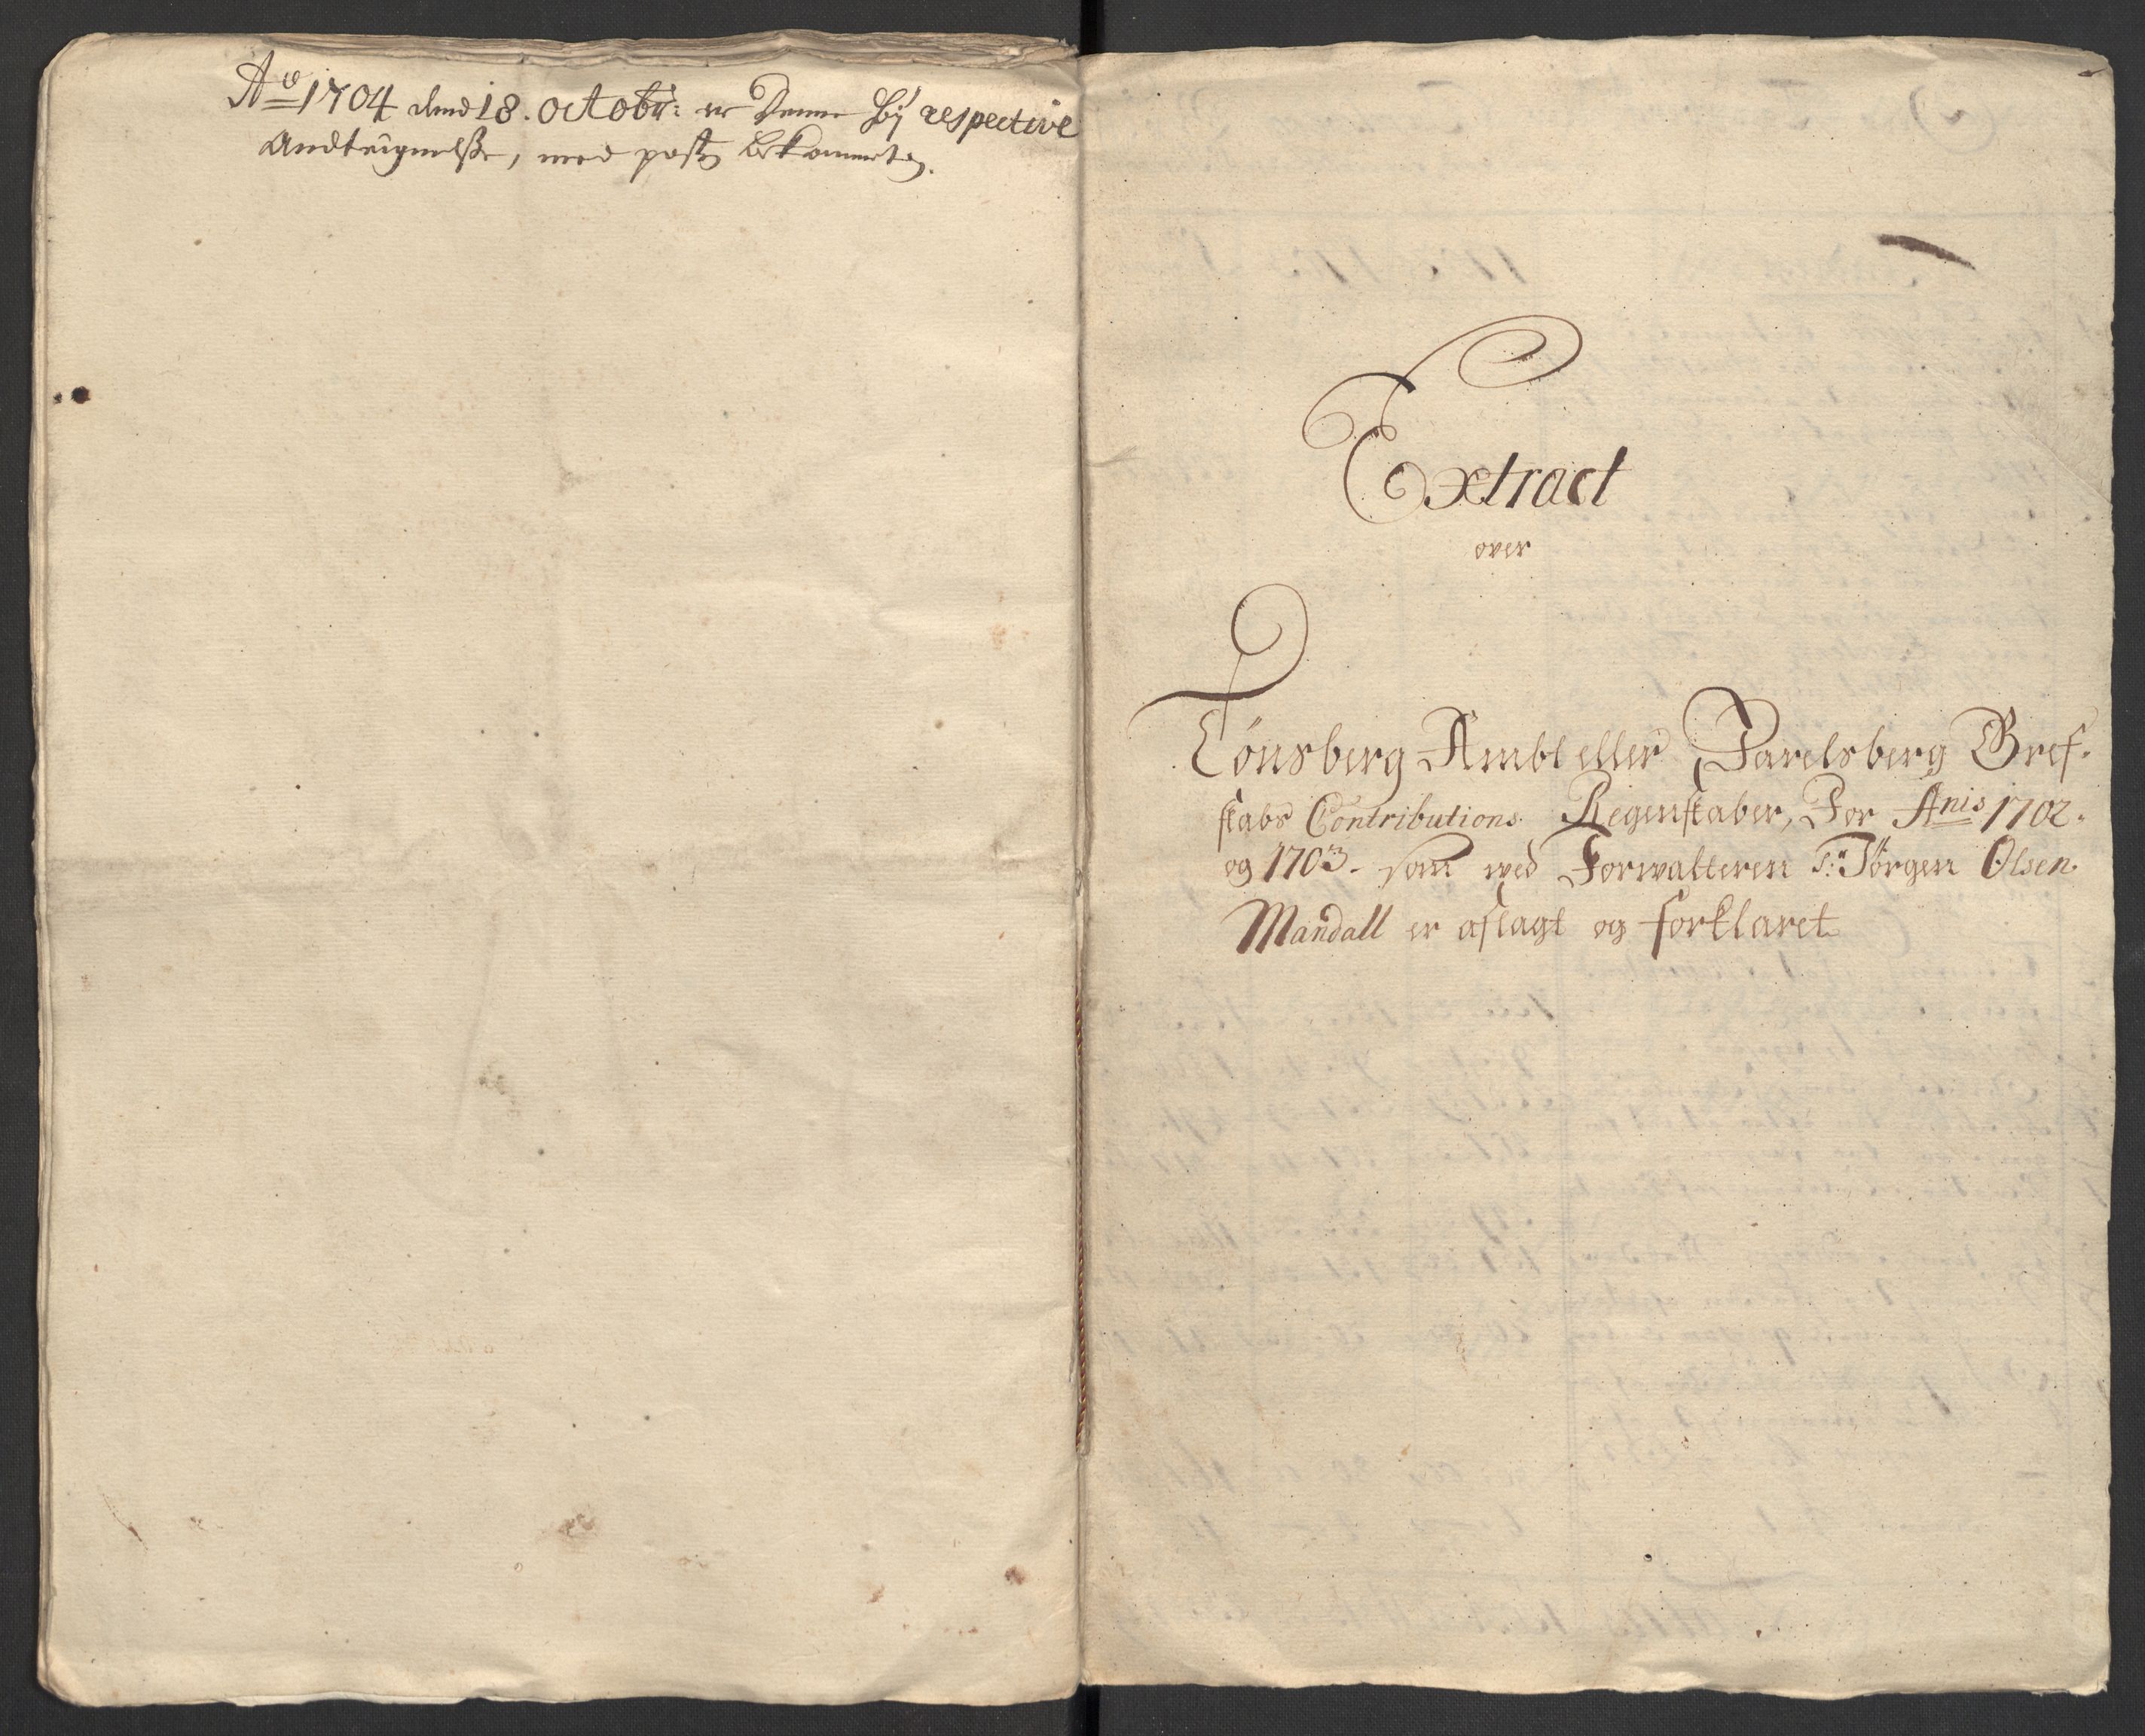 Ao 1704 dend 18. octobr: er Denne bij respective
Andteignelsse, med post bekommet.
Extract
over
Tønsberg Ambt eller Jarelsberg Gref-
skabs Contributions Regenskaber, For Anis 1702.
og 1703. som ved Forwalteren Sr Jørgen Olsen
Mandall er aflagt og forklaret